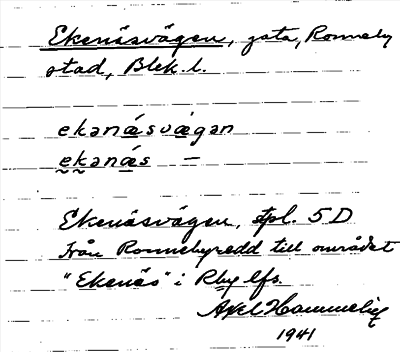 Ekenäsvägen, gata, Ronneby
stad, Blek. l.
ekanäsvägan
ekanäs —
Ekenäsvägen, stpl. 5 D
Från Ronnebyredd till området
"Ekenäs" i Rby lfs.
Axel Hammelig
1941